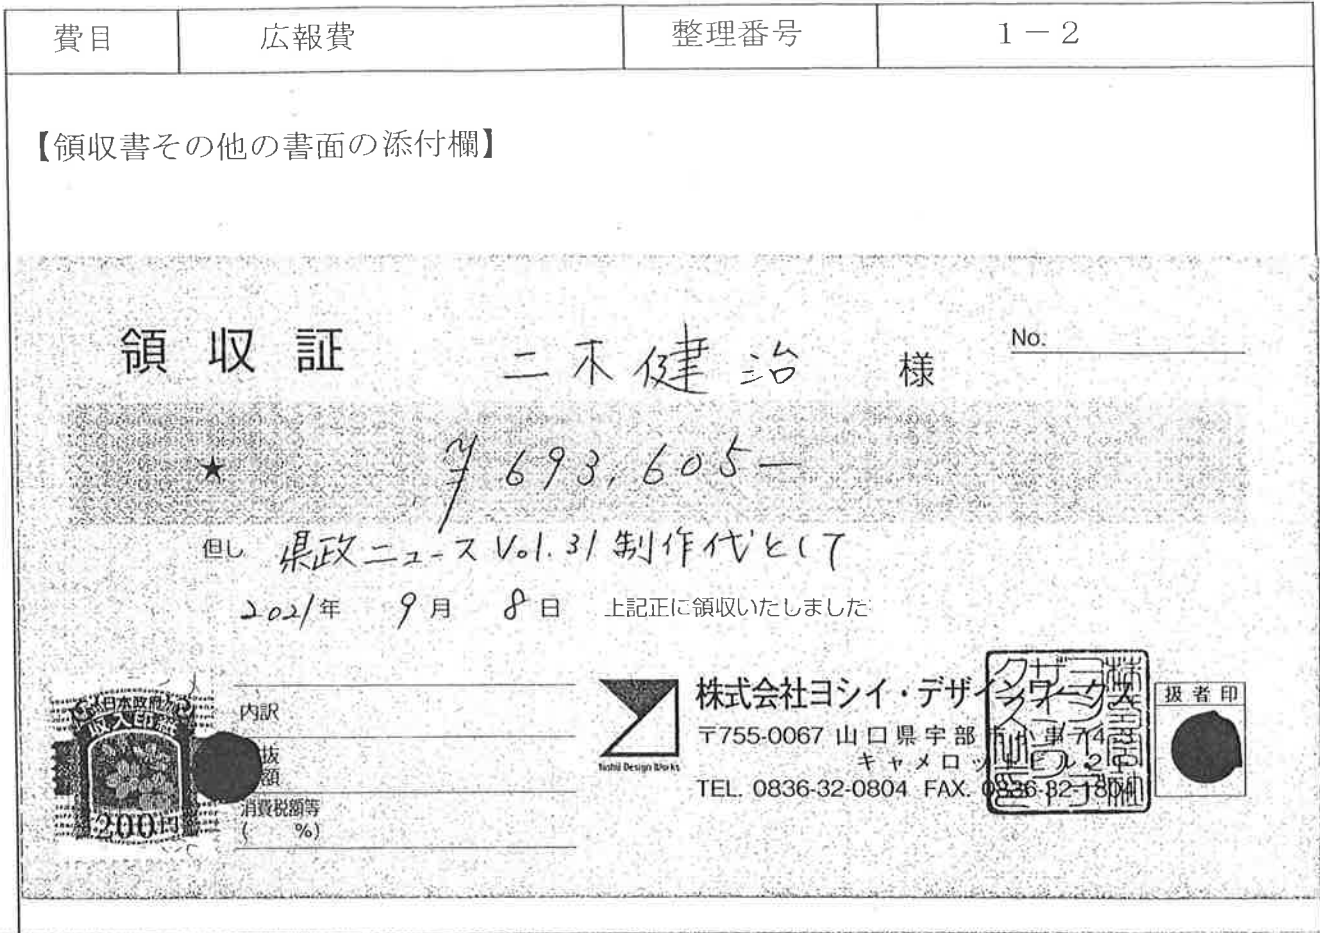 費目 広報費 整理番号 1－2
【領収書その他の書面の添付欄】
領収証 二木健治 様 No.
★ ¥693,605－
但し 県政ニュース Vol.31 制作代として
2021年 9月 8日 上記正に領収いたしました
日本政府
収入印紙
200円
内訳
抜
額
消費税額等
( %)
Yoshii Design Works
株式会社ヨシイ・デザインワークス
〒755-0067 山口県宇部市小串74-3
キャメロットビル2F
TEL. 0836-32-0804 FAX. 0836-32-1804
扱者印